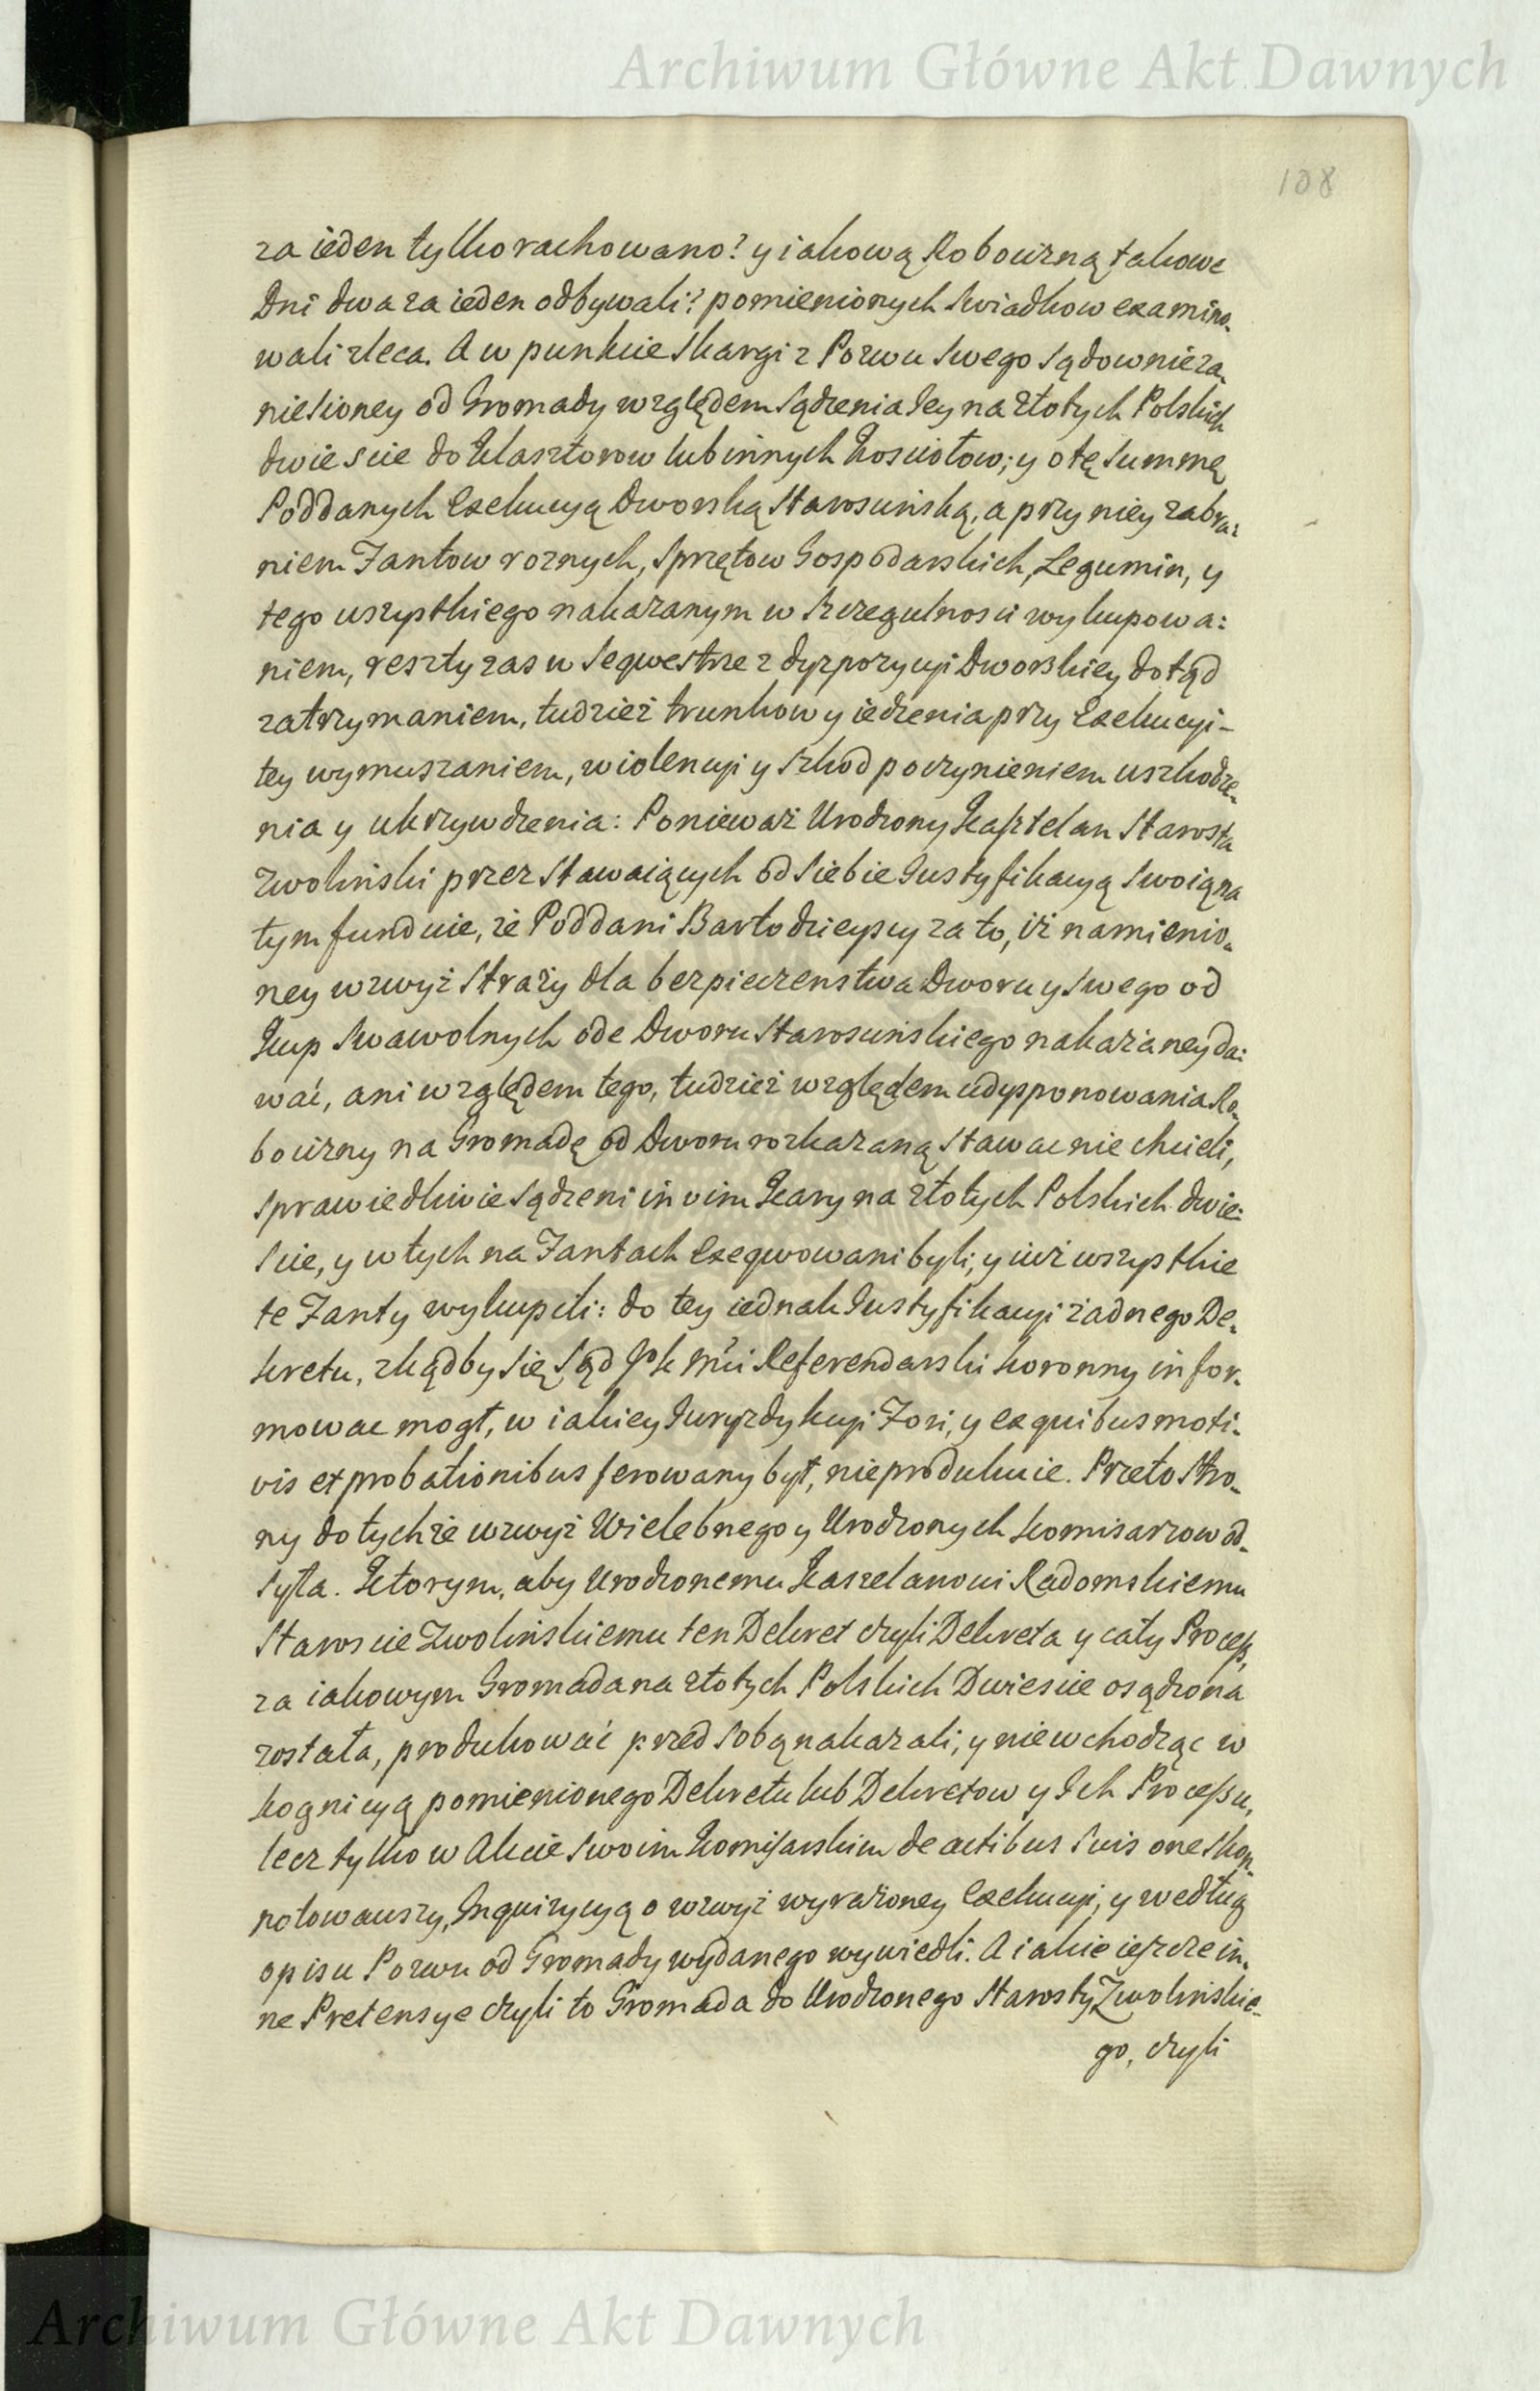 Archiwum Główne Akt Dawnych
108
za ieden tylko rachowano? y iakową Robocizną takowe
Dni dwa za ieden odbywali? pomienionych Swiadkow examino-
wali zleca. A w punkcie Skargi z Pozwu swego sądownie za-
niesioney od Gromady względem sądzenia Jey na złotych Polskich
dwiescie do Klasztorow lub innych Kosciołow; y o tę Summę
Poddanych Exekucyą Dworską Staroscińską, a przy niey zabra:
niem Fantow roznych, Sprzętow Gospodarskich, Legumin, y
tego wszystkiego nakazanym w szczegulnosci wykupowa:
niem, reszty zas w Seqwestrze z dyzpozycyi Dworskiey dotąd
zatrzymaniem, tudzież trunkow y iedzenia przy Exekucyi-
tey wymuszaniem, wiolencyi y szkod poczynieniem uszkodze-
nia y ukrzywdzenia: Ponieważ Urodzony Kasztelan Starosta
Zwolinski przez Stawaiących od siebie Justyfikacyą swoią na
tym funduie, że Poddani Bartodzieyscy za to, iż namienio-
ney wzwyż Straży dla bezpieczenstwa Dworu y swego od
Kup Swawolnych ode Dworu Staroscińskiego nakazaney da:
wać, ani względem tego, tudzież względem udysponowania Ro-
bocizny na Gromadę od Dworu rozkazaną stawac nie chcieli,
sprawiedliwie sądzeni in vim Kary na złotych Polskich dwie-
scie, y w tych na Fantach Exeqwowani byli; y iuż wszystkie
te Fanty wykupili: do tey iednak Justyfikacyi żadnego De-
kretu, zkądby się Sąd JoK Mći Referendarski Koronny infor-
mowac mogł, w iakiey Juryzdykcyi Fori, y ex quibus moti-
vis et probationibus ferowany był, nieprodukuie. Przeto Stro-
ny do tychże wzwyż Wielebnego y Urodzonych Komisarzow od-
syła. Ktorym, aby Urodzonemu Kasztelanowi Radomskiemu
Staroscie Zwolińskiemu ten Dekret czyli Dekreta y cały Process,
za iakowym Gromada na złotych Polskich Dwiescie osądzona
została, produkować przed sobą nakazali; y niewchodząc w
kognicyą pomienionego Dekretu lub Dekretow y Ich Processu,
lecz tylko w Akcie swoim Komisarskim de actibus suis one skon-
notowawszy, Inquizycyą o wzwyż wyrażoney Exekucyi, y według
opisu Pozwu od Gromady wydanego wywiedli. A iakie ieszcze in-
ne Pretensye czyli to Gromada do Urodzonego Starosty Zwolinskie-
go, czyli
Archiwum Główne Akt Dawnych